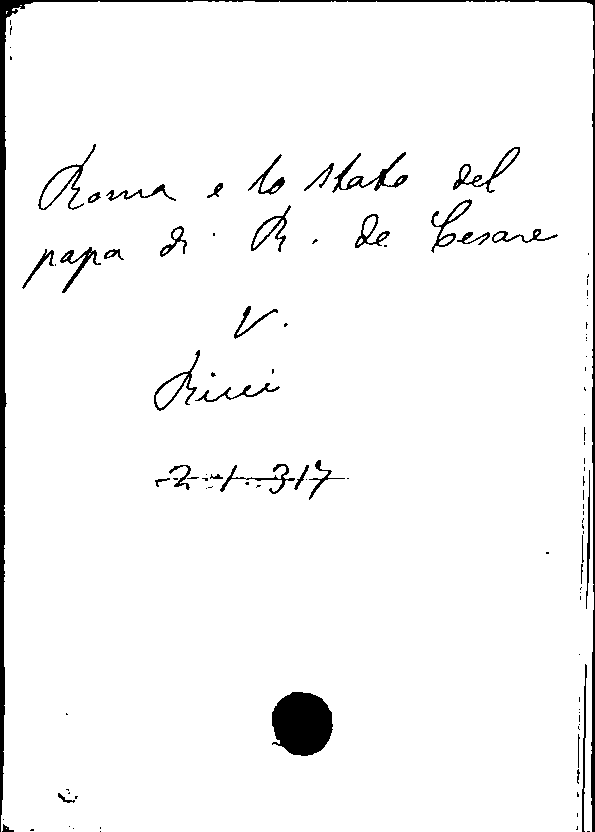 Roma e lo stato del
papa di R. de Cesare
V.
Ricci
2.1.317